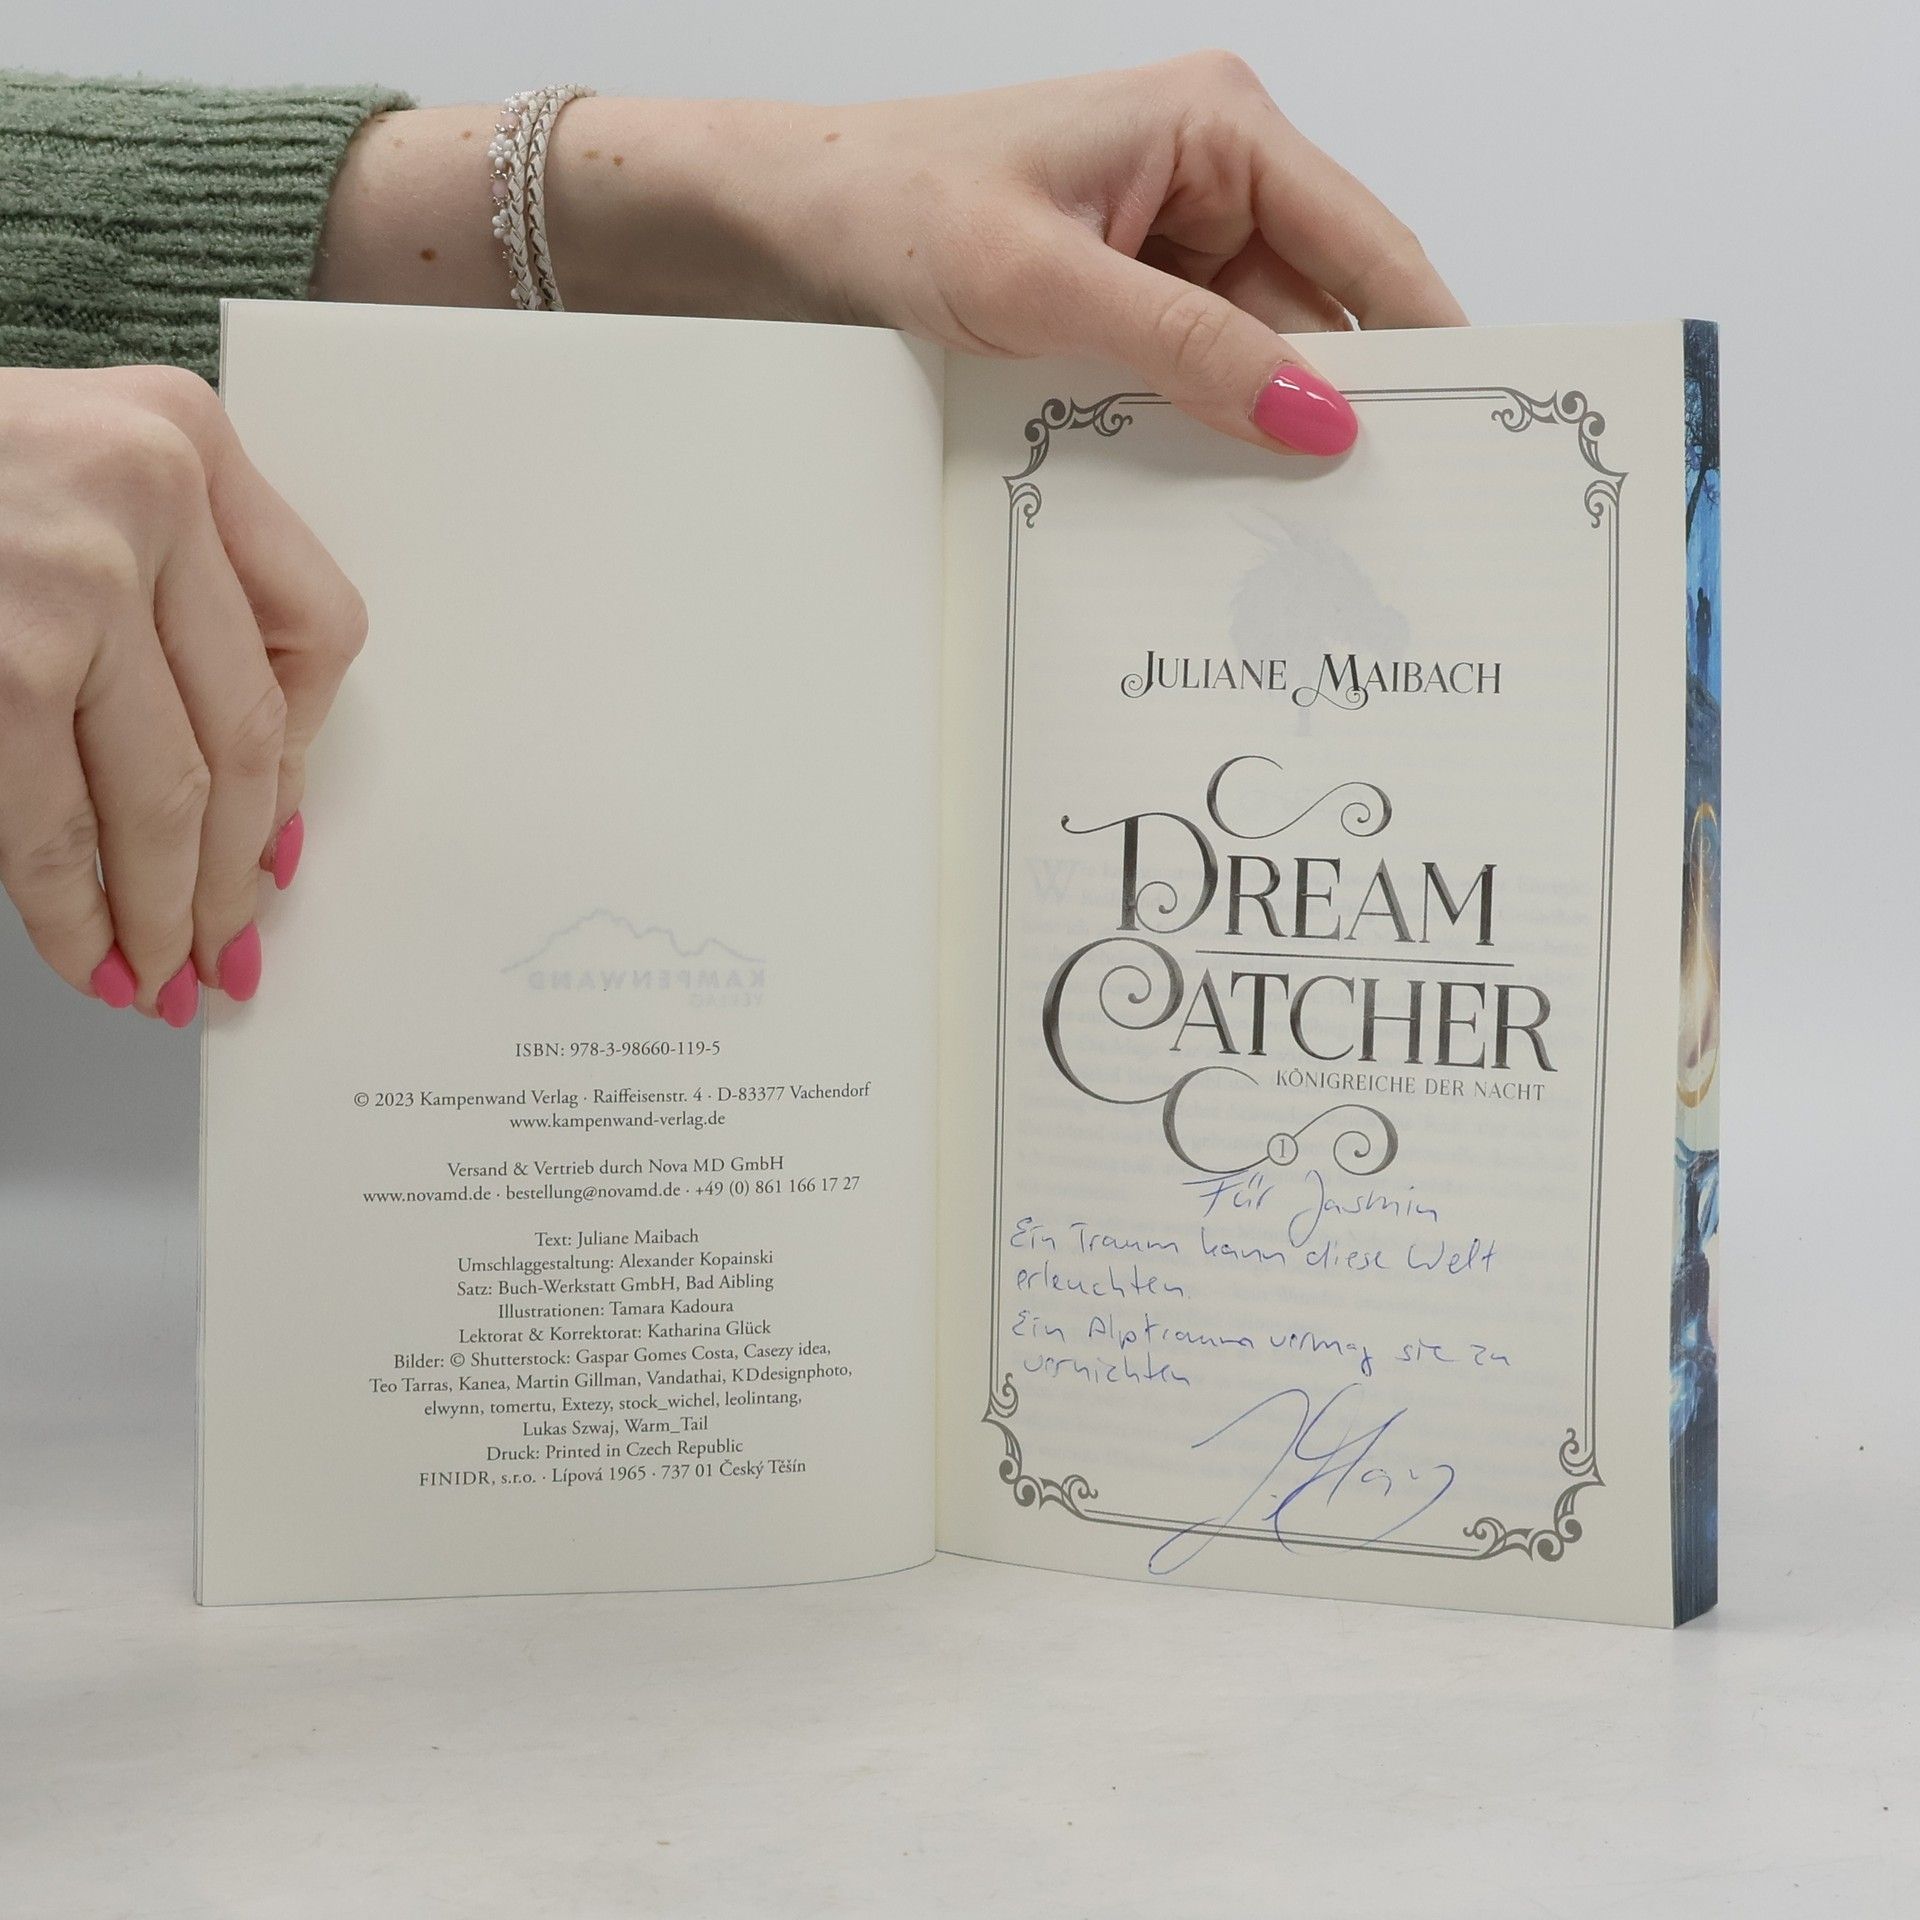 ISBN: 978-3-98660-119-5
© 2023 Kampenwand Verlag · Raiffeisenstr. 4 · D-83377 Vachendorf
www.kampenwand-verlag.de
Versand & Vertrieb durch Nova MD GmbH
www.novamd.de · bestellung@novamd.de · +49 (0) 861 166 17 27
Text: Juliane Maibach
Umschlaggestaltung: Alexander Kopainski
Satz: Buch-Werkstatt GmbH, Bad Aibling
Illustrationen: Tamara Kadoura
Lektorat & Korrektorat: Katharina Glück
Bilder: © Shutterstock: Gaspar Gomes Costa, Casezy idea,
Teo Tarras, Kanea, Martin Gillman, Vandathai, KDdesignphoto,
elwynn, tomertu, Extezy, stock_wichel, leolintang,
Lukas Szwaj, Warm_Tail
Druck: Printed in Czech Republic
FINIDR, s.r.o. · Lípová 1965 · 737 01 Český Těšín
JULIANE MAIBACH
DREAM
CATCHER
KÖNIGREICHE DER NACHT
1
Für Jasmin
Ein Traum kann diese Welt
erleuchten.
Ein Alptraum vermag sie zu
vernichten